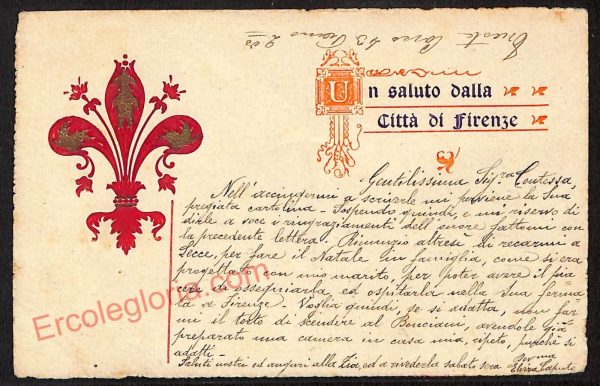 Un saluto dalla
Città di Firenze
Gentilissima Sig.ra Contessa,
Nell'accingermi a scriverle mi perviene la Sua
pregiata cartolina - Sospendo quindi, e mi riservo di
dirle a voce i ringraziamenti dell'onore fattomi con
la precedente lettera. Rinunzio altresì di recarmi a
Lecce, per fare il Natale in famiglia, come si era
progettato con mio marito, per poter avere il pia
cere di ossequiarla, ed ospitarla nella Sua ferma
ta a Firenze. Voglia quindi, se si adatta, non far
mi il torto di scendere al Bonciani, avendole già
preparato una camera in casa mia, ripeto, purchè si
adatti -
Saluti nostri ed auguri alla Zia, ed a rivederla sabato sera
Elvira Caputo
Ercolegloria.com